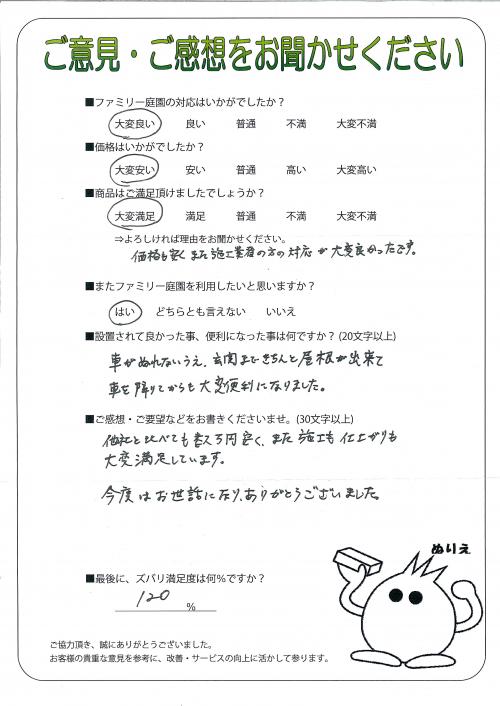 ご意見・ご感想をお聞かせください
■ファミリー庭園の対応はいかがでしたか？
大変良い 良い 普通 不満 大変不満
■価格はいかがでしたか？
大変安い 安い 普通 高い 大変高い
■商品はご満足頂けましたでしょうか？
大変満足 満足 普通 不満 大変不満
⇒よろしければ理由をお聞かせください。
価格も安く また施工業者の方の対応が大変良かったです。
■またファミリー庭園を利用したいと思いますか？
はい どちらとも言えない いいえ
■設置されて良かった事、便利になった事は何ですか？(20文字以上)
車がぬれないうえ、玄関まできちんと屋根が出来て
車を降りてからも大変便利になりました。
■ご感想・ご要望などをお書きくださいませ。(30文字以上)
他社と比べても数万円安く、また施工も仕上がりも
大変満足しています。
今度はお世話になり、ありがとうございました。
ぬりえ
■最後に、ズバリ満足度は何％ですか？
120 ％
ご協力頂き、誠にありがとうございました。
お客様の貴重な意見を参考に、改善・サービスの向上に活かして参ります。